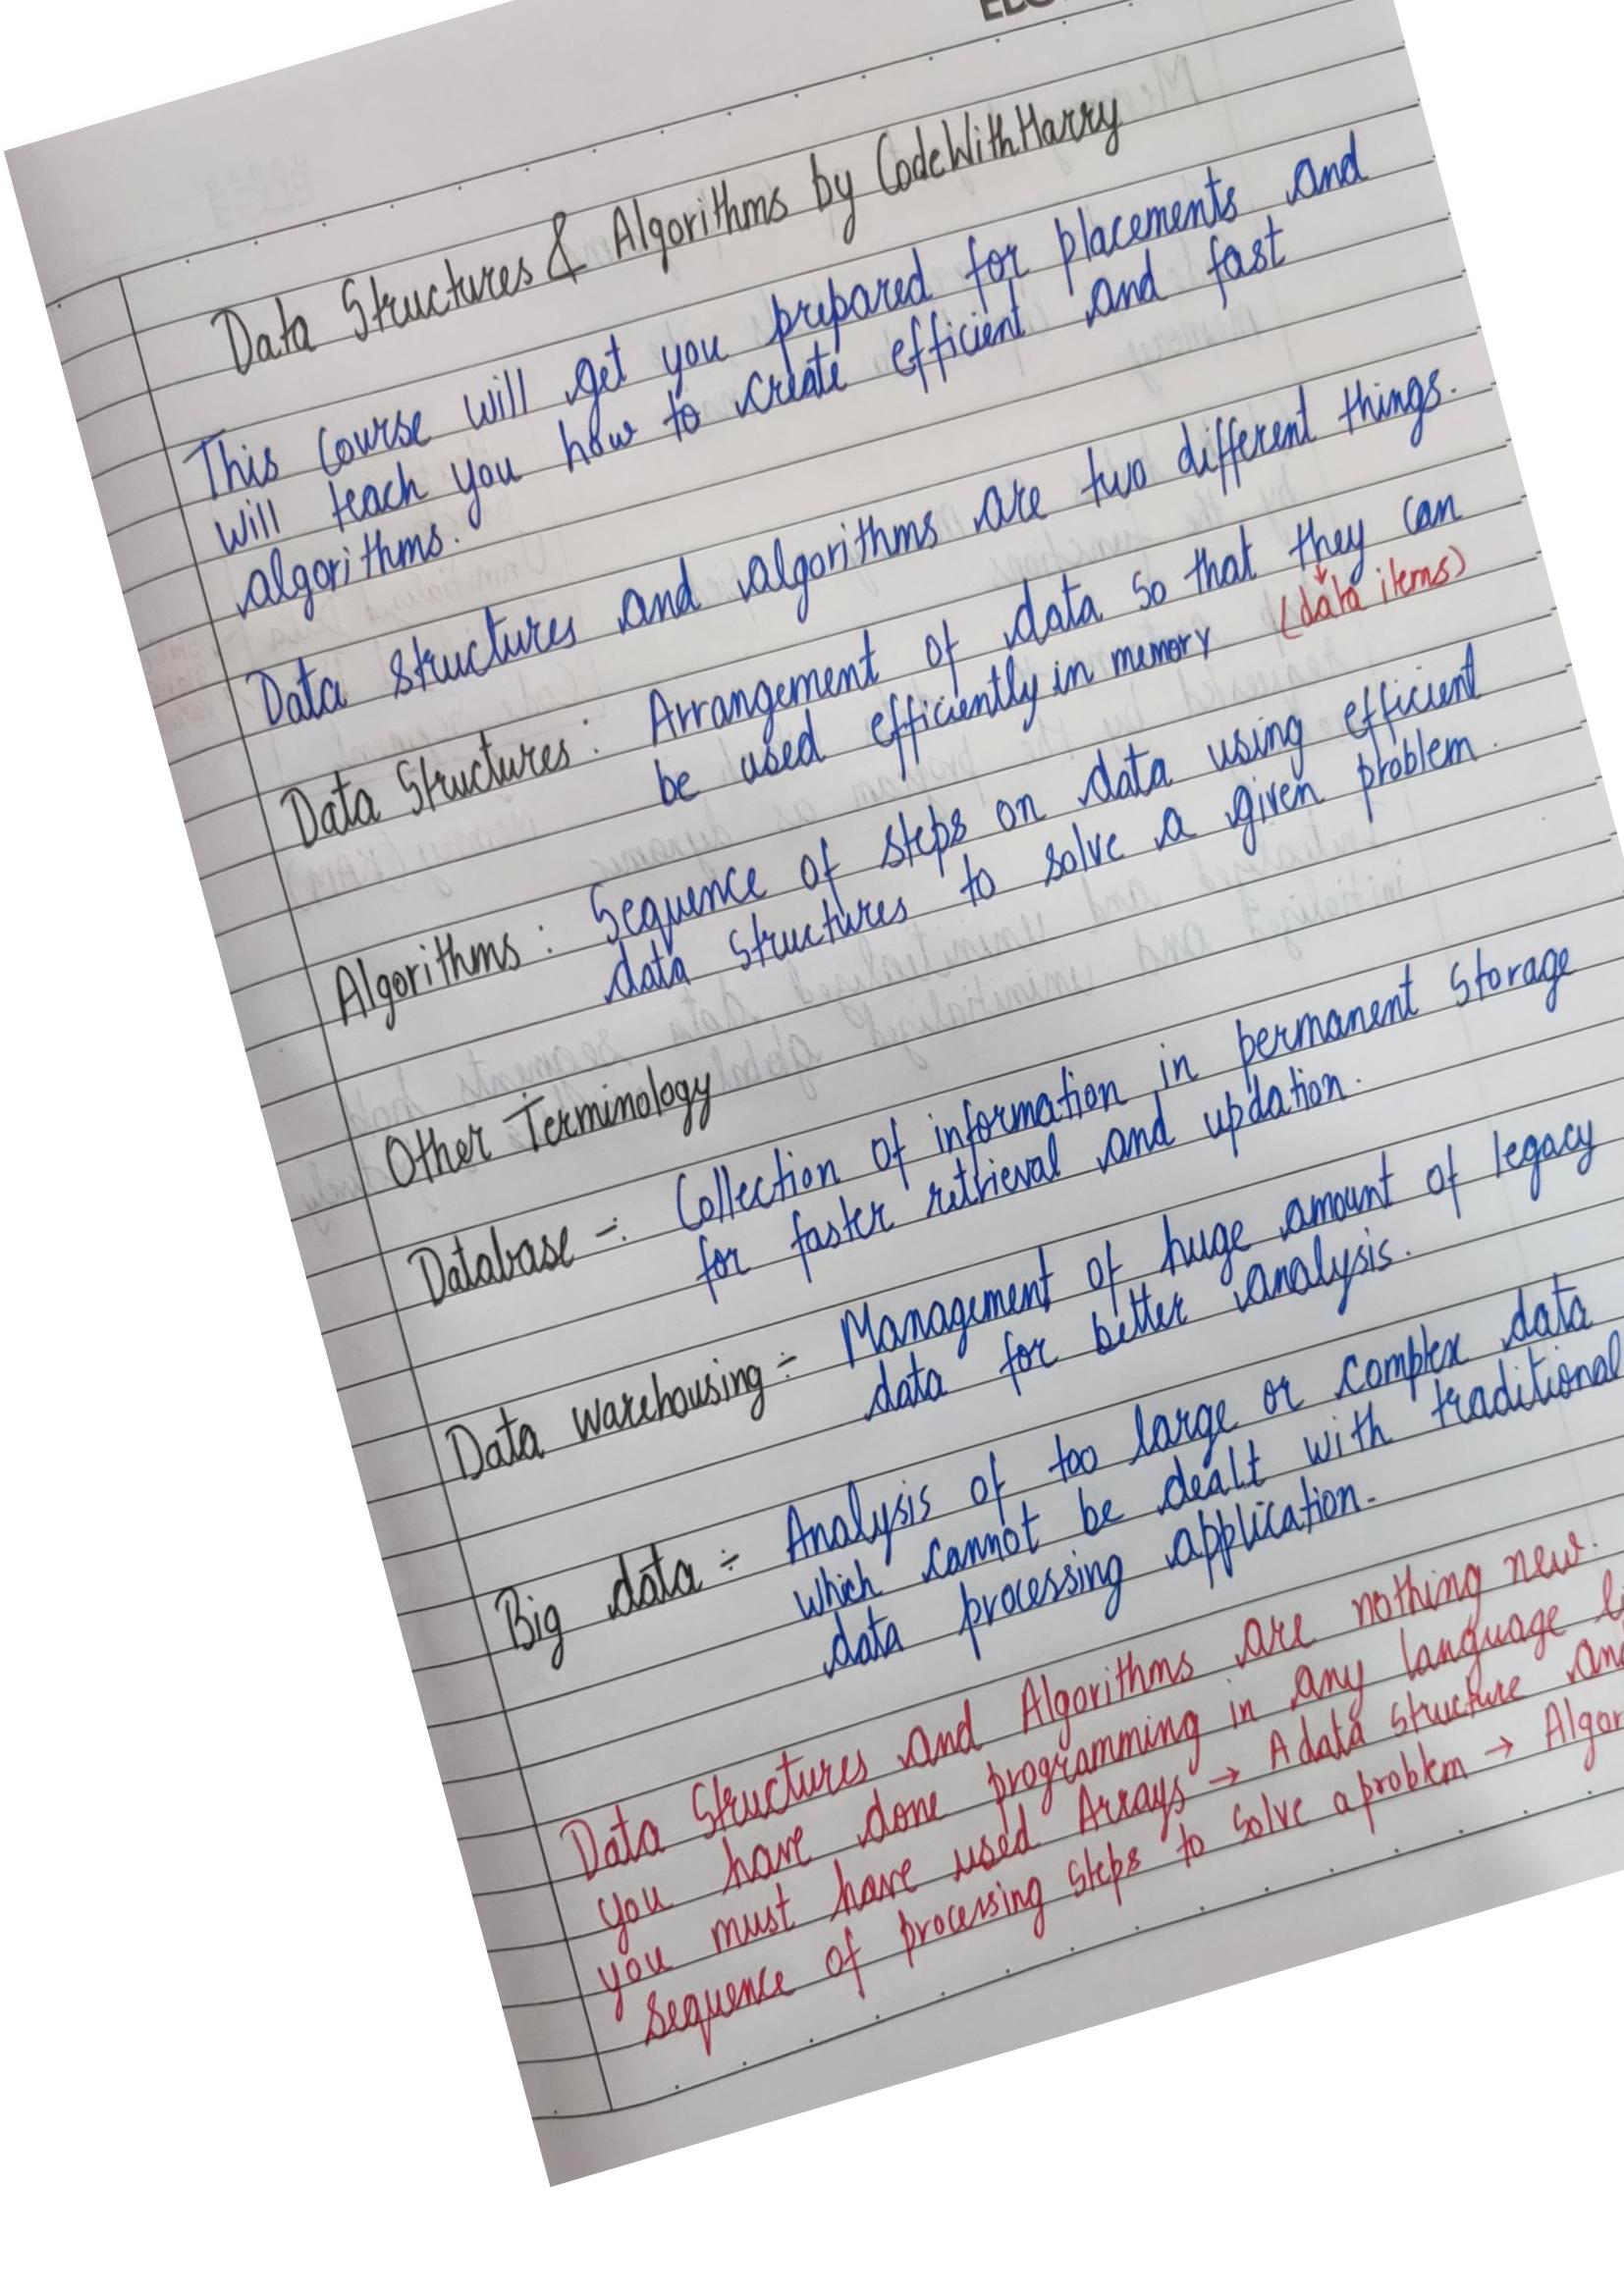 Data Structures & Algorithms by CodeWithHarry
This course will get you prepared for placements and
will teach you how to create efficient and fast
algorithms.
Data structures and algorithms are two different things.
Data Structures : Arrangement of data so that they can
(data items)
be used efficiently in memory
Algorithms : Sequence of steps on data using efficient
data structures to solve a given problem.
Other Terminology
Database -: Collection of information in permanent storage
for faster retrieval and updation.
Data warehousing ÷ Management of huge amount of legacy
data for better analysis.
Big data ÷ Analysis of too large or complex data
which cannot be dealt with traditional
data processing application.
Data Structures and Algorithms are nothing new.
you have done programming in any language
you must have used Arrays → A data structure
sequence of processing steps to solve a problem →